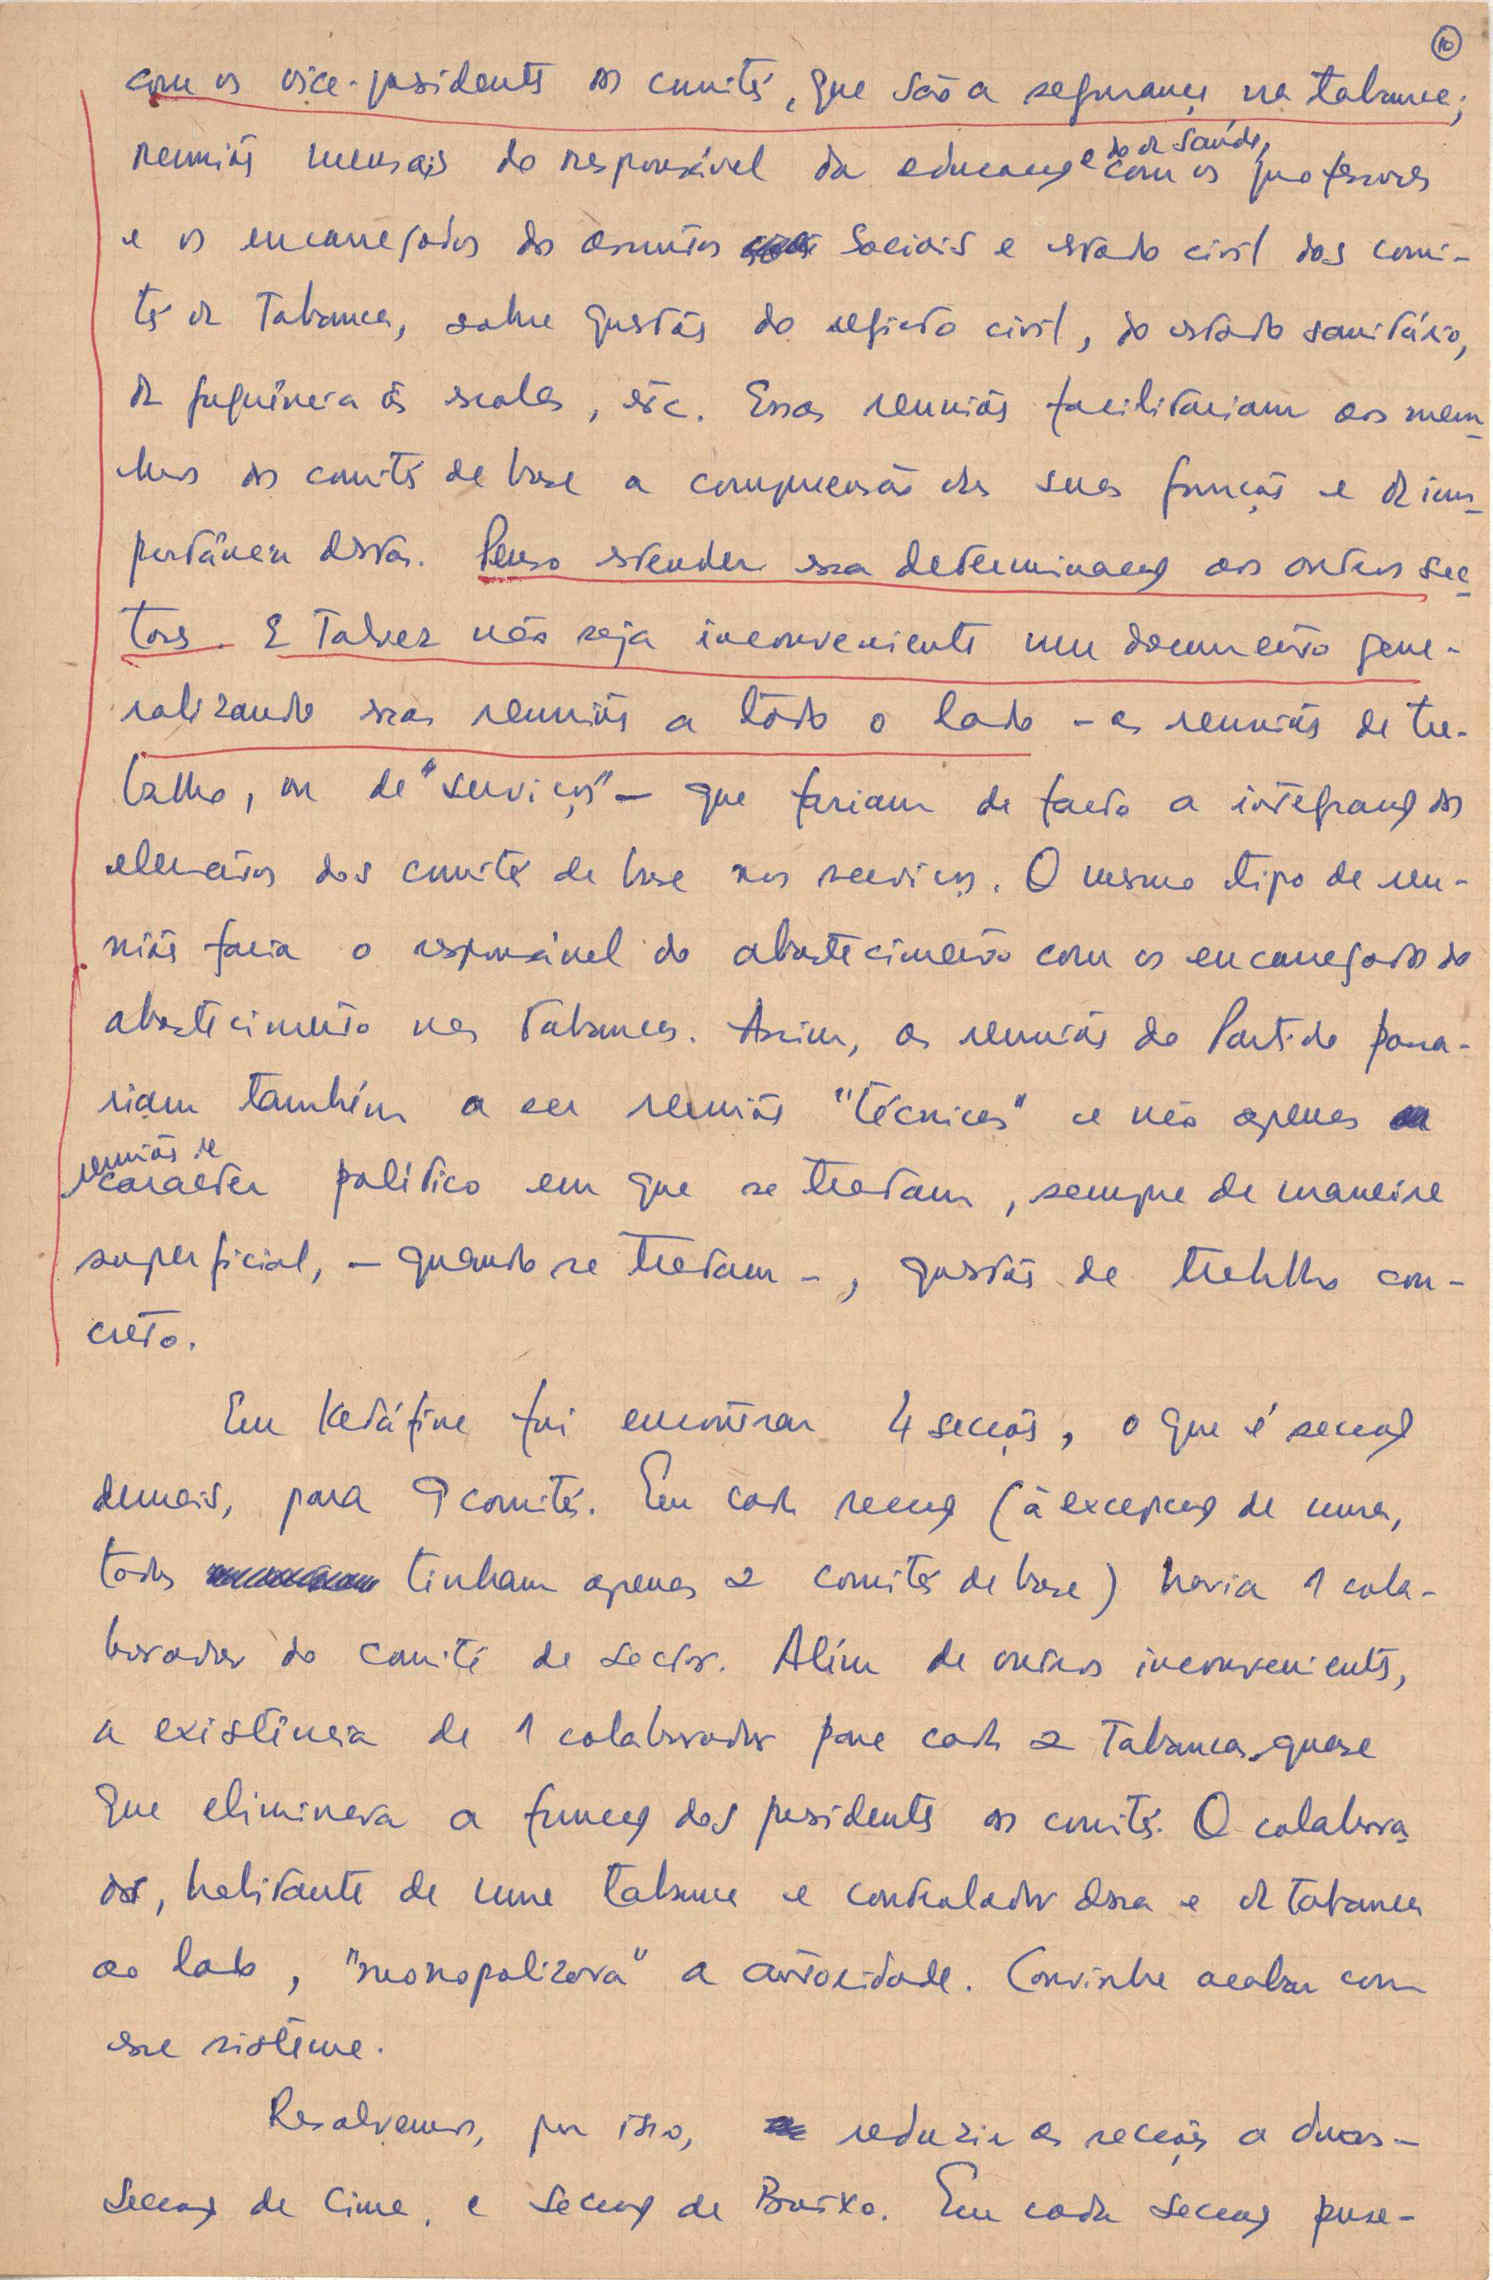 10
com os vice-presidentes dos comités, que são a segurança na tabanca;
reuniões mensais do responsável da educação e do da saúde, com os professores
e os encarregados dos assuntos sociais e estado civil dos comi-
tés de Tabanca, sobre questões do registo civil, do estado sanitário,
da frequência às escolas, etc. Essas reuniões facilitariam aos mem-
bros dos comités de base a compreensão das suas funções e da im-
portância destas. Penso estender essa determinação aos outros sec-
tores. E talvez não seja inconveniente um documento gene-
ralizando essas reuniões a todo o lado - as reuniões de tra-
balho, ou de "serviços" - que fariam de facto a integração dos
elementos dos comités de base nos serviços. O mesmo tipo de reu-
niões faria o responsável do abastecimento com os encarregados do
abastecimento nas tabancas. Assim, as reuniões do Partido passa-
riam também a ser reuniões "técnicas" e não apenas
reuniões de carácter político em que se tratam, sempre de maneira
superficial, - quando se tratam -, questões de trabalho con-
creto.
Em Ketáfine fui encontrar 4 secções, o que é secção
demais, para 9 comités. Em cada secção (à excepção de uma,
todas tinham apenas 2 comités de base) havia 1 cola-
borador do comité de sector. Além de outros inconvenientes,
a existência de 1 colaborador para cada 2 Tabancas quase
que eliminava a função dos presidentes dos comités. O colabora
dor, habitante de uma tabanca e controlador dessa e da tabanca
ao lado, "monopolizava" a autoridade. Convinha acabar com
esse sistema.
Resolvemos, por isso, reduzir as secções a duas -
Secção de Cima, e Secção de Baixo. Em cada secção puse-